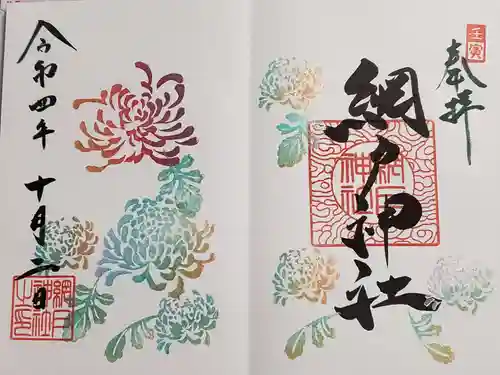 奉拝
壬寅
網戸神社
網戸神社
令和四年十月二日
網戸神社之印